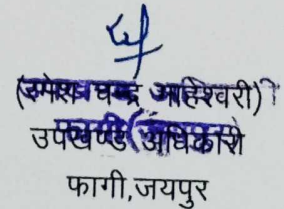 (उमेश चन्द्र माहेश्वरी)
उपखण्ड अधिकारी
फागी,जयपुर